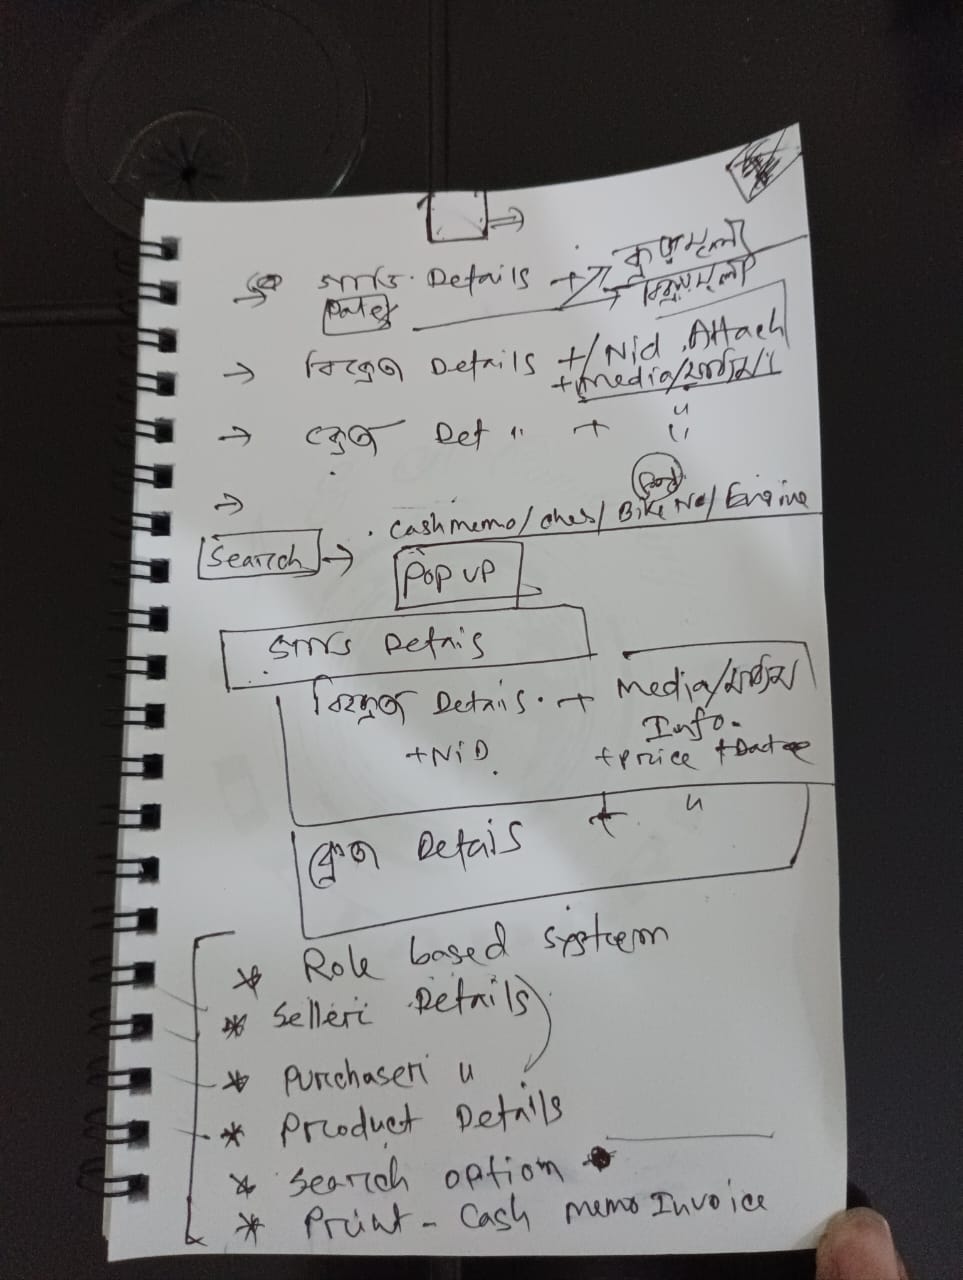 Details + ক্রয়মূল্য
Date বিক্রয়মূল্য
→ বিক্রেতা Details + / Nid Attach
+ media/
→ ক্রেতা Det " + "
→
cashmemo/ches/Bike No/Engine
Search →
POP UP
Details
বিক্রেতা Details. + Media/
Info.
+NiD. + price + Date
ক্রেতা Details + "
* Role based system
* Seller Details
* Purchaser "
* Product Details
* Search option
* Print - Cash memo Invoice